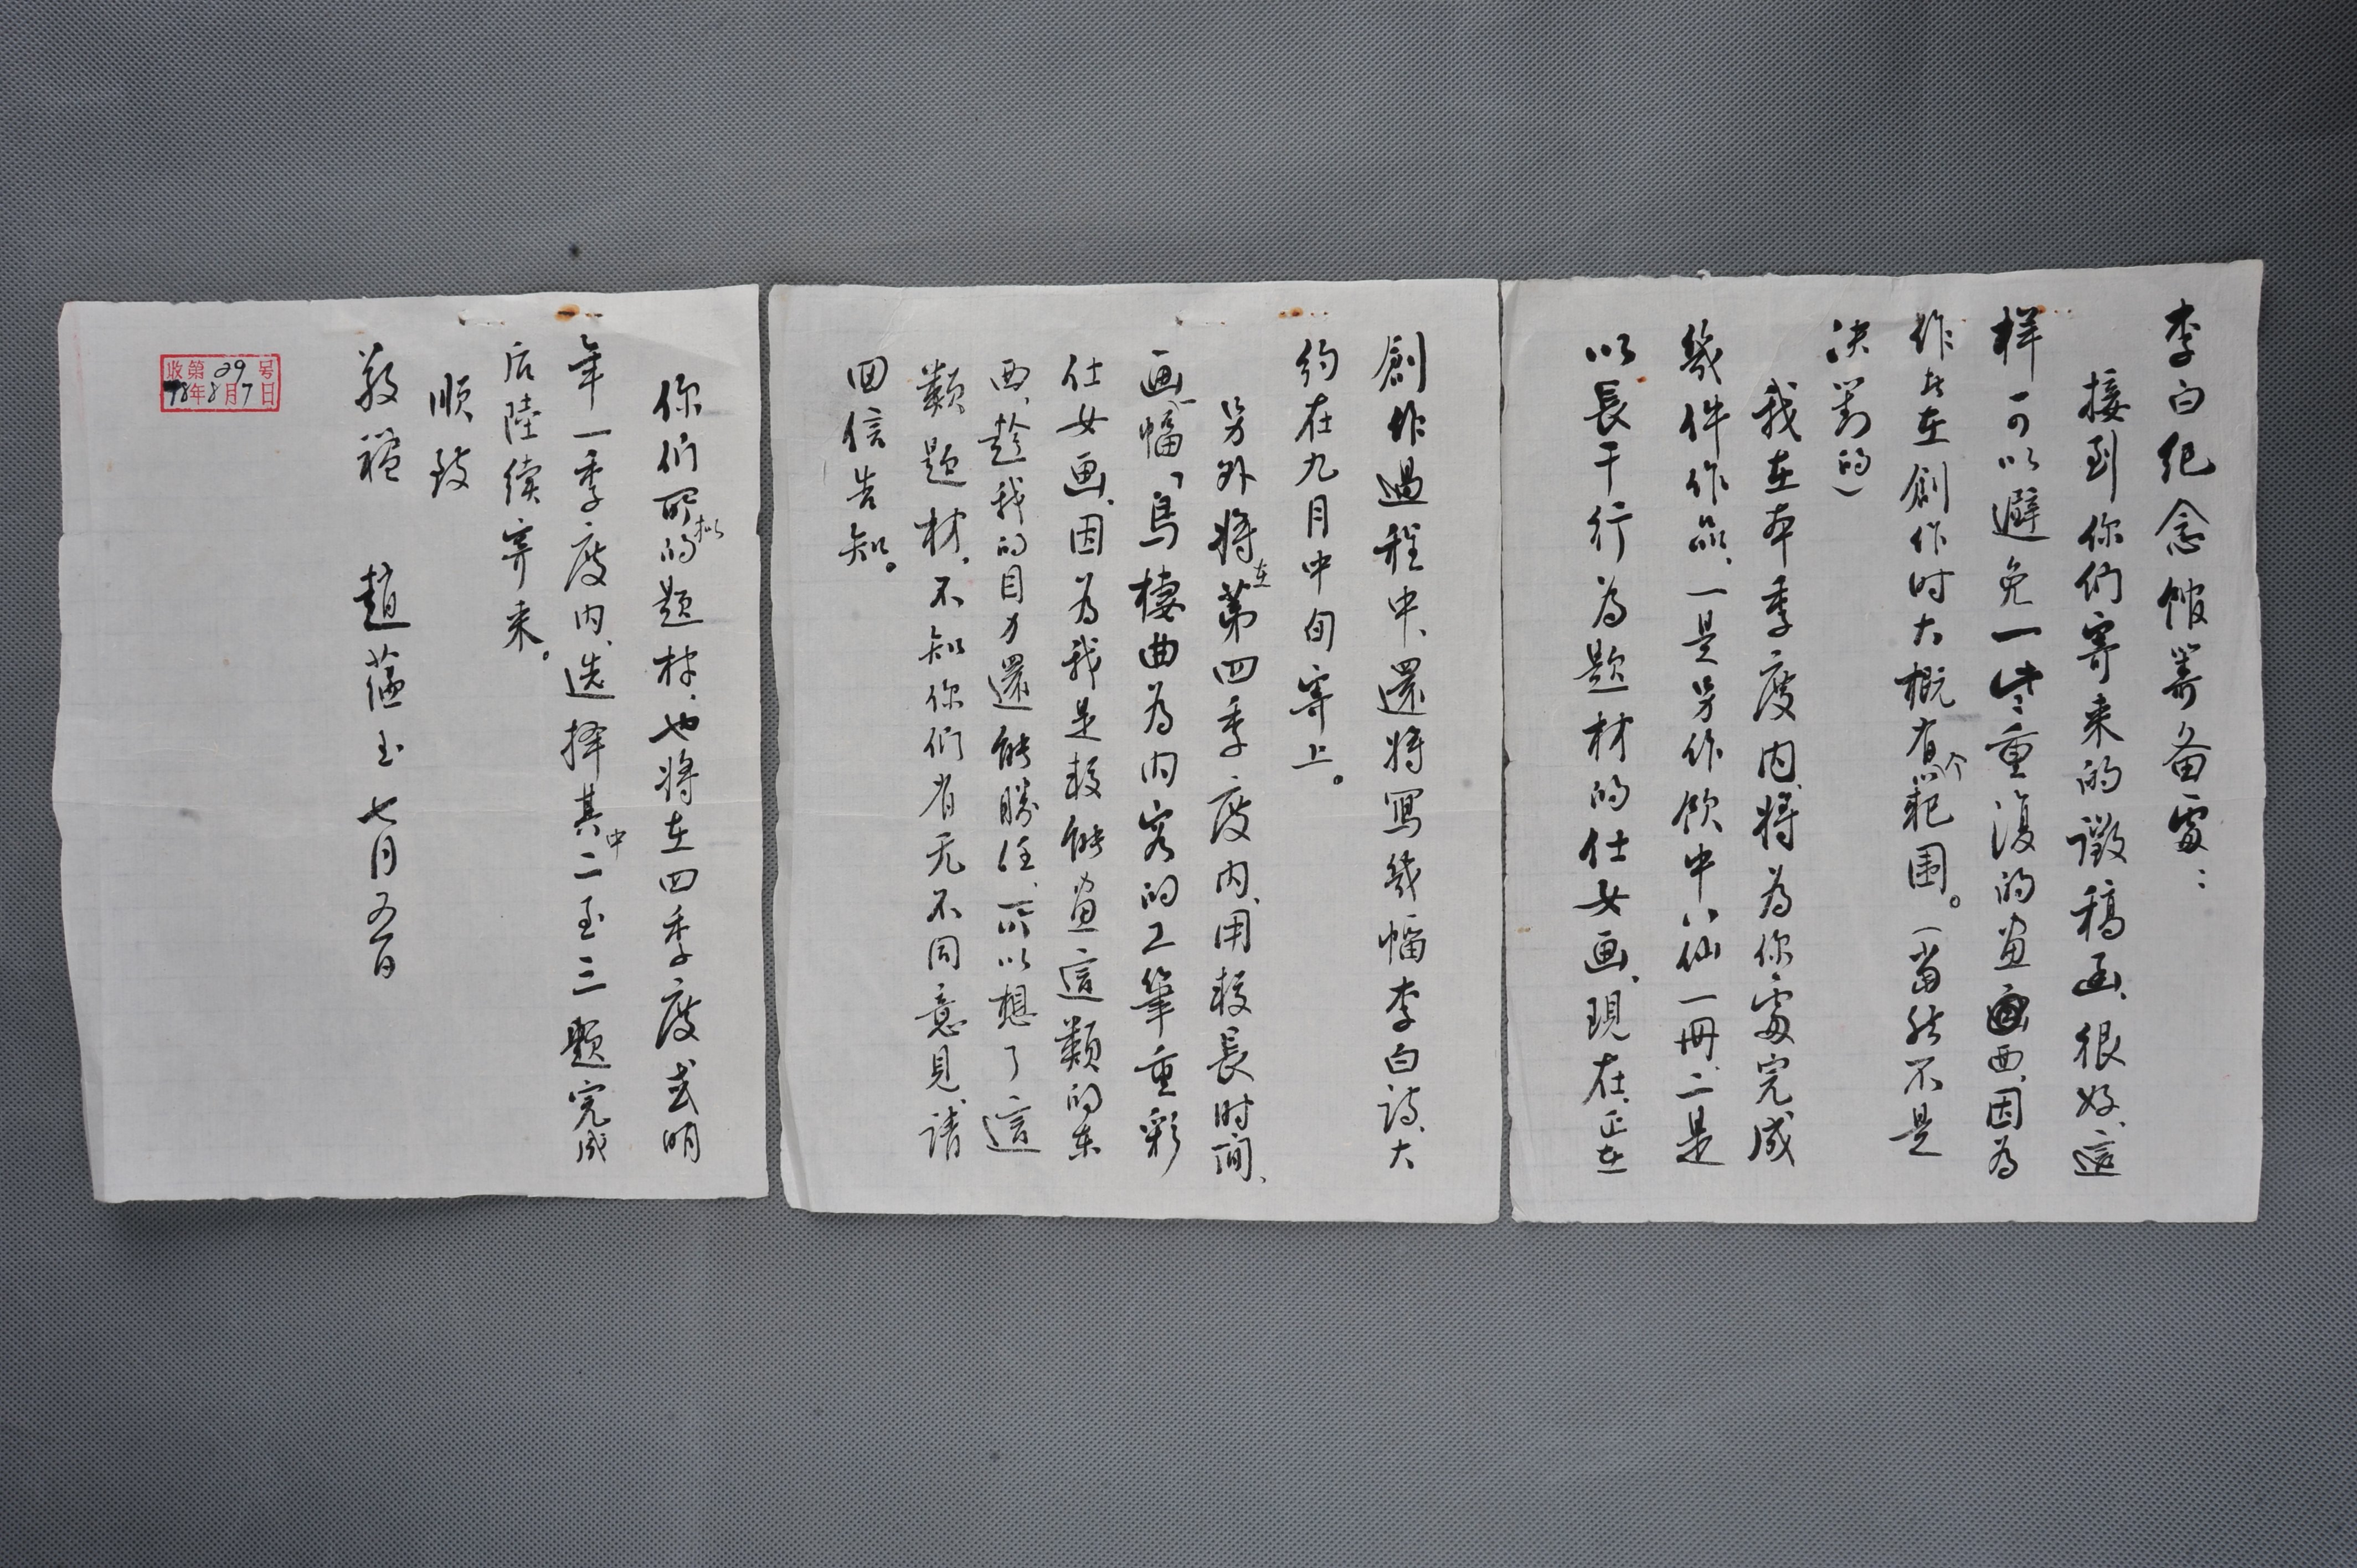 李白纪念馆筹备处：
接到你们寄来的徵稿函、很好、這
样可以避免一些重復的画西、因为
作者在創作时大概有个范围。（当然不是
决對的）
我在本季度内、将为你处完成
幾件作品、一是另作饮中八仙一冊、二是
以長干行为题材的仕女画、現在正在
創作過程中、還将寫幾幅李白诗、大
约在九月中旬寄上。
另外将在第四季度内、用較長时间、
画一幅「烏棲曲为内容的工筆重彩
仕女画、因为我是較能画這類的东
西、趁我的目力還能勝任、所以想了這
類题材、不知你们有无不同意見、请
回信告知。
你们所拟的题材、也将在四季度或明
年一季度内、选择其中二至三题完成
后陸續寄来。
顺致
敬禮
趙蕴玉 七月五日
收第29号
78年8月7日